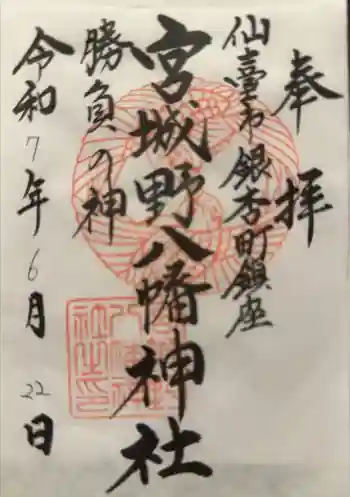 奉拝
仙臺市銀杏町鎮座
宮城野八幡神社
勝負の神
令和7年6月22日